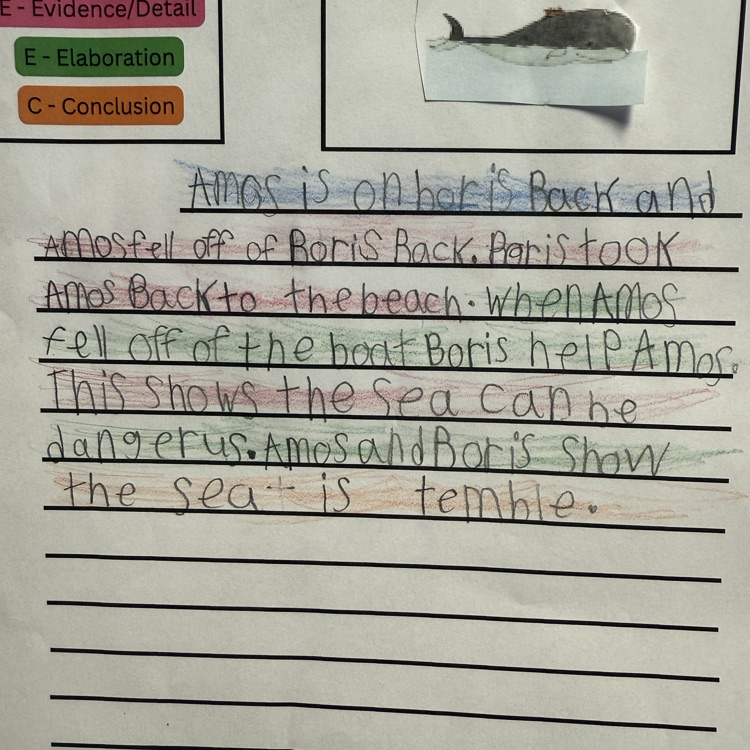 E - Evidence/Detail
E - Elaboration
C - Conclusion
Amos is on boris Back and
Amos fell off of Boris Back. Boris took
Amos Back to the beach. when Amos
fell off of the boat Boris help Amos.
This shows the sea can be
dangerus. Amos and Boris show
the sea is